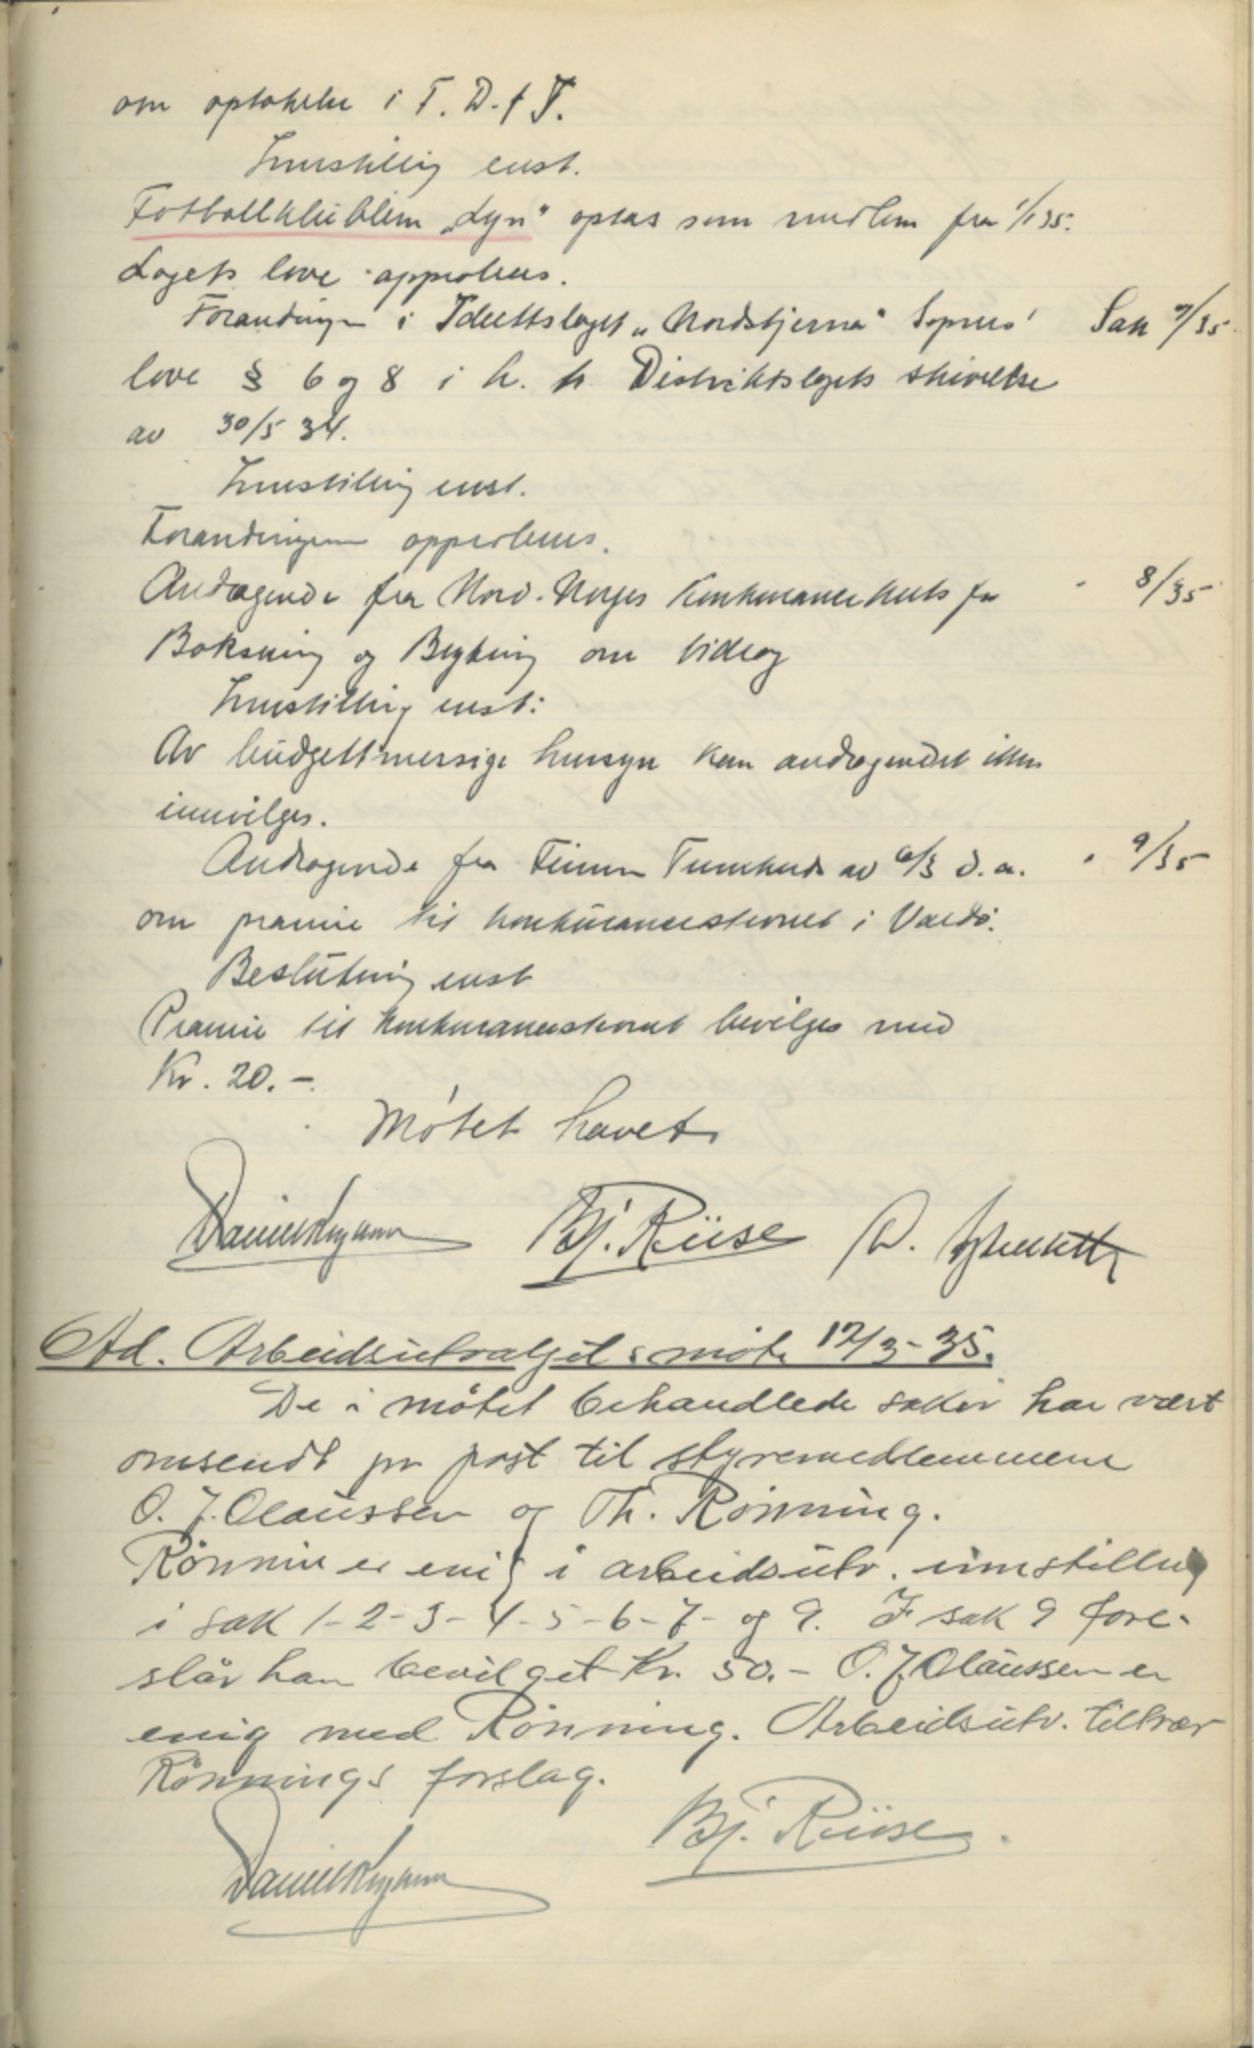 om optakelse i F. D. f F.
Innstilling enst.
Fotballklubben „Lyn" optas som medlem fra 1/1 35.
Lagets love approberes.
Forandringer i Idrettslaget „Nordstjerna" Sopnes' Sak 7/35
love § 6 og 8 i h. h. Distriktslagets skrivelse
av 30/5 34.
Innstilling enst.
Forandringene approberes.
Andragende fra Nord-Norges Konkurransekrets for " 8/35
Boksning og Bryting om bidrag
Innstilling enst:
Av budgettmessige hensyn kan andragendet ikke
innvilges.
Andragende fra Finnm Turnkrets av 6/3 d.a. " 9/35
om premie til konkurransestevnet i Vardö.
Beslutning enst
Premie til konkurransestevnet bevilges med
Kr. 20.-
Møtet hevet
Bj. Riise
Ad. Arbeidsutvalgets møte 12/3-35.
De i møtet behandlede saker har vært
omsendt pr post til styremedlemmene
O. J. Olaussen og Th. Rønning.
Rønnin er enig i arbeidsutv. innstilling
i sak 1-2-3-4-5-6-7- og 9. I sak 9 fore-
slår han bevilget Kr. 50.- O. J. Olaussen er
enig med Rønning. Arbeidsutv. tiltrær
Rønnings forslag.
Bj. Riise